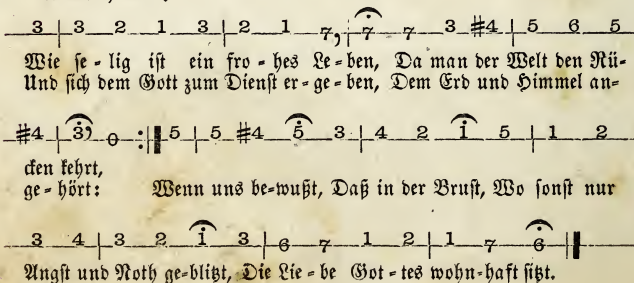 3 | 3 2 1 3 | 2 1 7, | 7 7 3 #4 | 5 6 5
Wie se - lig ist ein fro - hes Le - ben, Da man der Welt den Rü-
Und sich dem Gott zum Dienst er - ge - ben, Dem Erd und Himmel an-
#4 | 3, 0 :|| 5 | 5 #4 5 3 | 4 2 1 5 | 1 2
cken kehrt,
ge - hört: Wenn uns be-wußt, Daß in der Brust, Wo sonst nur
3 4 | 3 2 1 3 | 6 7 1 2 | 1 7 6 ||
Angst und Noth ge-blitzt, Die Lie - be Got - tes wohn-haft sitzt.